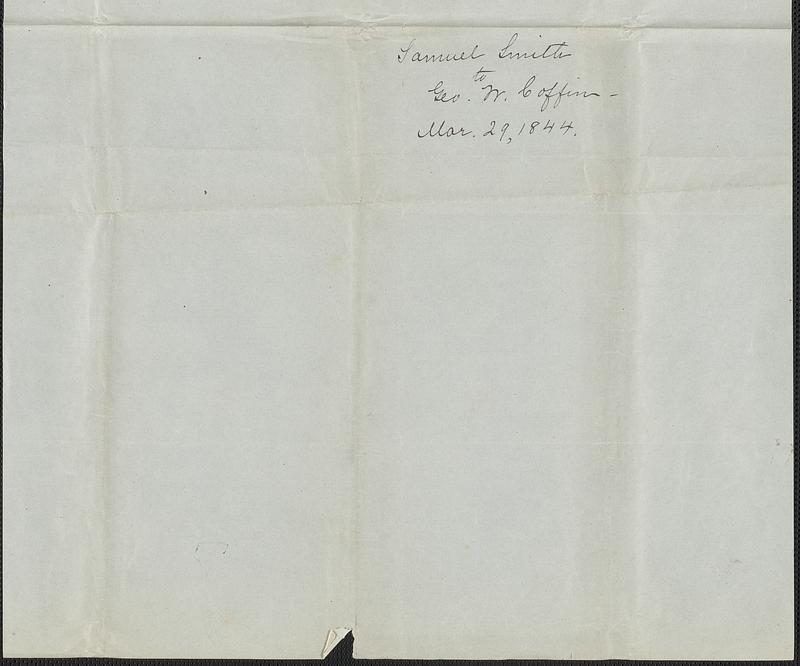 Samuel Smith
to
Geo. W. Coffin -
Mar. 29, 1844.